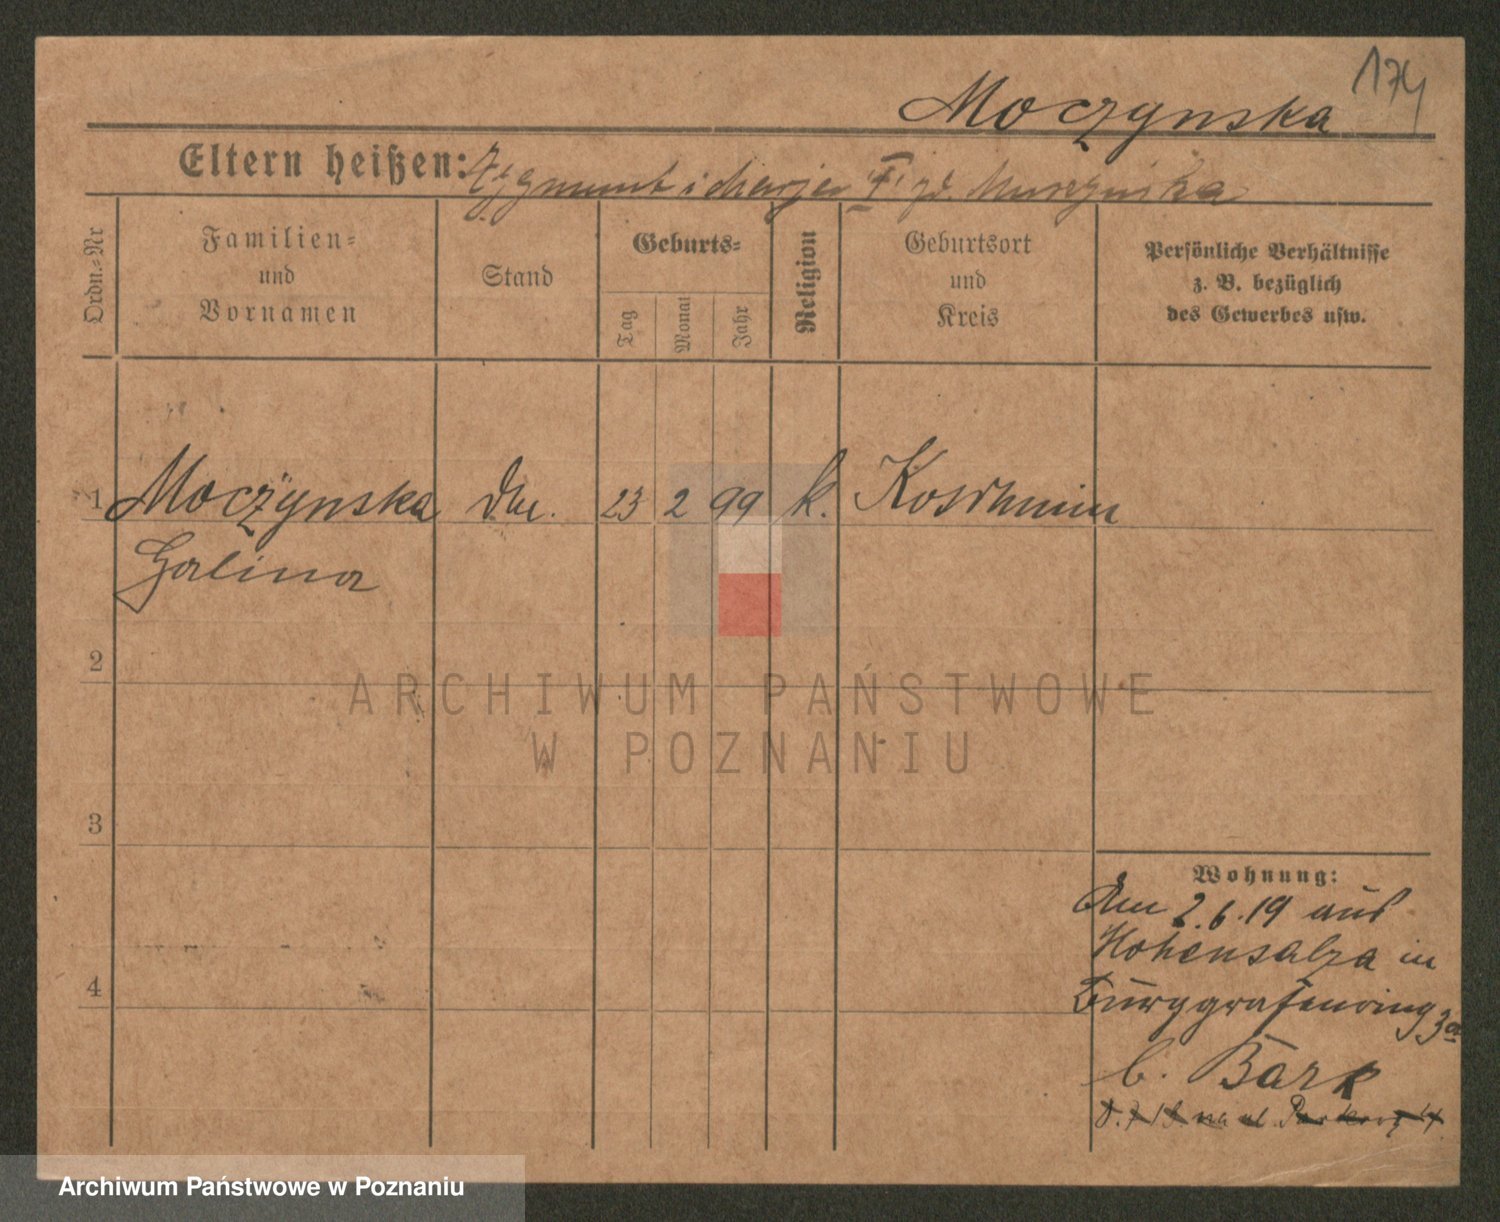 174
Moczynska
Eltern heißen: Zygmunt i
Ordn.-Nr
Familien-
und
Vornamen
Stand
Geburts-
Tag
Monat
Jahr
Religion
Geburtsort
und
Kreis
Persönliche Verhältnisse
z. B. bezüglich
des Gewerbes usw.
1 Moczynska 23 2 99 k. Kosthmin
Halina
2
3
4
Wohnung:
Am 2.6.19 aus
Hohensalza in
Burggrafenring 3a
b. Bark
ARCHIWUM PAŃSTWOWE
W POZNANIU
Archiwum Państwowe w Poznaniu